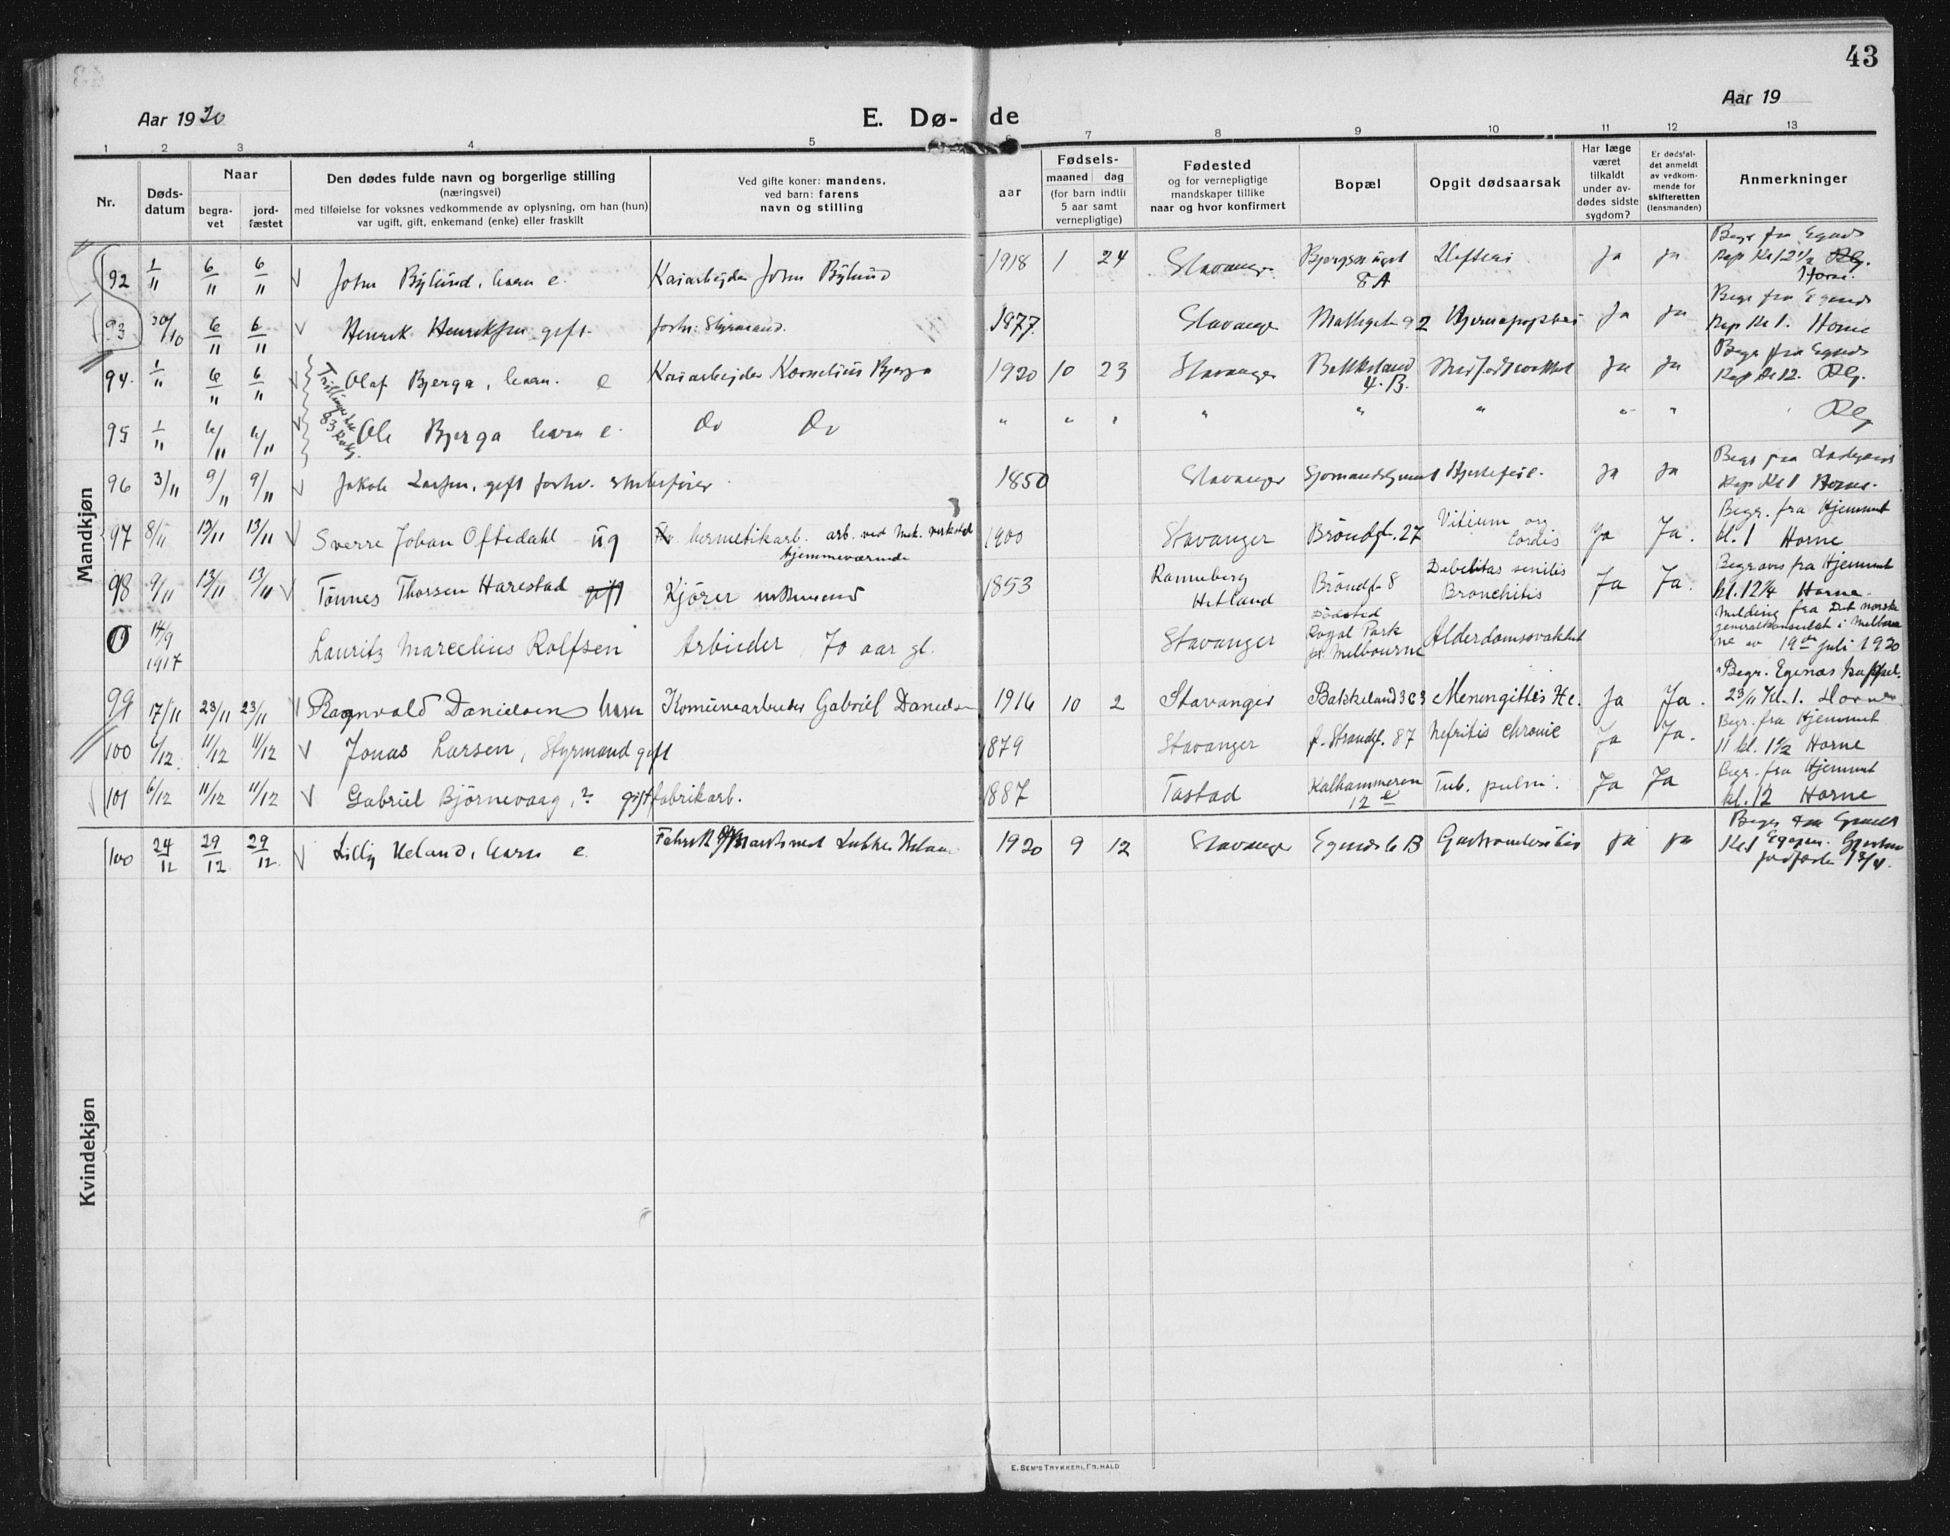 43
Aar 1920
E. Dø-de
Aar 19
1 2 3 4 5 6 7 8 9 10 11 12 13
Nr.
Døds-datum
Naar
begra-vet
jord-fæstet
Den dødes fulde navn og borgerlige stilling
(næringsvei)
med tilføielse for voksnes vedkommende av oplysning, om han (hun)
var ugift, gift, enkemand (enke) eller fraskilt
Ved gifte koner: mandens,
ved barn: farens
navn og stilling
aar
Fødsels-
maaned dag
(for barn indtil
5 aar samt
vernepligtige)
Fødested
og for vernepligtige
mandskaper tillike
naar og hvor konfirmert
Bopæl
Opgit dødsaarsak
Har læge
været
tilkaldt
under av-
dødes sidste
sygdom?
Er dødsfal-
det anmeldt
av vedkom-
mende for
skifteretten
(lensmanden)
Anmerkninger
Mandkjøn
92 1/11 6/11 6/11 John Bylund, barn e. Kaiarbeider John Bylund 1918 1 24 Stavanger 8 A ja ja Begr fra Egnæs Kap Kl 12 1/2 Horne.
93 30/10 6/11 6/11 Henrik Henriksen gift. forhv. Styrmand. 1877. Stavanger ja ja Begr fra Egnæs Kap Kl 1. Horne
94. 1/11 6/11 6/11 Olaf Bjerga, barn. e Kaiarbeider Kornelius Bjerga 1920 10 23 Stavanger Bakkeland 4. B. ja ja Begr fra Egnæs Kap Kl 12.
95 1/11 6/11 6/11 Ole Bjerga barn e. Do Do " " " " " " " "
96 3/11 9/11 9/11 Jakob Larsen, gift forhv. 1850 Stavanger Hjertefeil. ja ja Kap Kl 1 Horne.
97 8/11 13/11 13/11 Sverre Johan Oftedahl ug hermetikarb. arb. ved Mek. verksted hjemmeværende 1900 Stavanger Brøndgt. 27 Vitium org cordis Ja Ja. Begr. fra Hjemmet kl. 1 Horne
98 9/11 13/11 13/11 Tønnes Thorsen Harestad gift Kjører 1853 Ranneberg Hetland Brøndgt 8 Debilitas senilis Bronchitis Ja Ja. Begraves fra Hjemmet kl. 12 1/4 Horne.
0 14/9 1917 Lauritz Marcelius Rolfsen Arbeider, 70 aar gl. Stavanger Dødsted Royal Park pr. Melbourne Alderdomssvakhet Melding fra Det norske generalkonsulat i Melbourne av 19de juli 1920
99 17/11 23/11 23/11 Ragnvald Danielsen barn Komunearbeider Gabriel Danielsen 1916 10 2 Stavanger Bakkeland 363 Meningittis Ja Ja. Begr. Egenæs kappel. 23/11 Kl. 1. Horne
100 6/12. 11/12 11/12 Jonas Larsen, Styrmand gift 1879 Stavanger Strandgt. 87 Nefritis chronic Ja Ja. Begr. fra Hjemmet 11 kl. 1 1/2 Horne
101 6/12 11/12 11/12 Gabriel Bjørnevaag, gift fabrikarb. 1887 Tastad Kalhammeren 12 e Tub. pulm. Ja Ja Begr. fra Hjemmet kl. 12 Horne
Kvindekjøn
100 24/12 29/12 29/12. Lilly Heland, barn e. 1920 9 12 Stavanger Egenæs 6 B ja ja
E. SEM'S TRYKKERI, FR. HALD